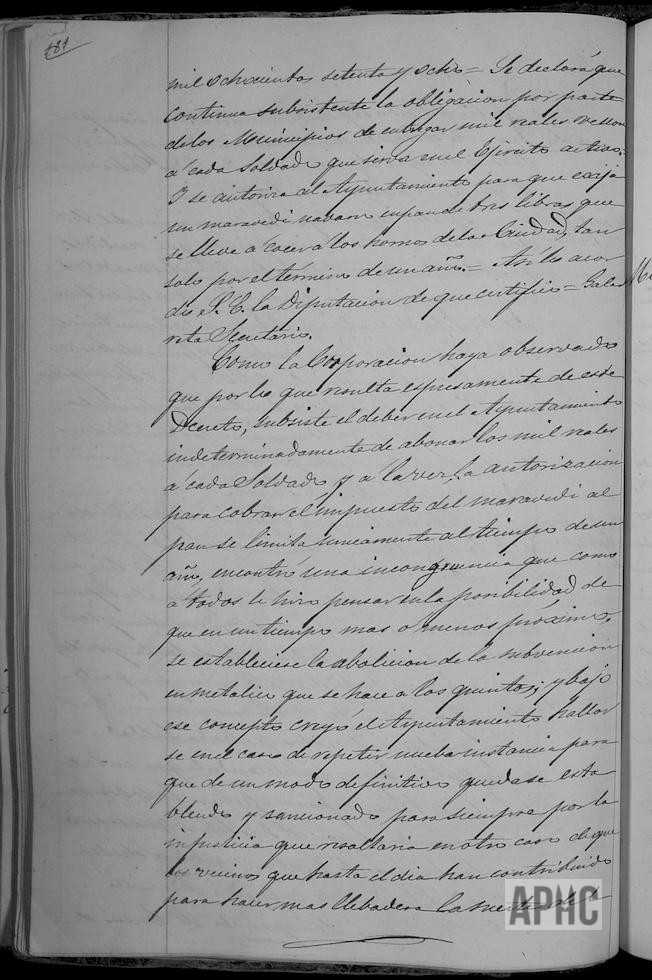 181
mil ochocientos setenta y ocho = Se declará que
continua subsistente la obligacion por parte
de los Municipios de entregar mil reales vellon
á cada Soldado que sirva en el Ejército activo.=
I se autoriza al Ayuntamiento para que exija
un maravedi navarro en pan de tres libras que
se lleve á cocer á los hornos de la Ciudad, tan
solo por el término de un año.= Asi lo acor
dó S. E. la Diputacion de que certifico = Gala
rreta Secretario.
Como la Corporacion haya observado
que por lo que resulta espresamente de este
Decreto, subsiste el deber en el Ayuntamiento
indeterminadamente de abonar los mil reales
á cada Soldado y á la vez, la autorizacion
para cobrar el impuesto del maravedi al
pan se limita unicamente al tiempo de un
año, encontró una incongruencia que como
á todos le hizo pensar en la posibilidad de
que en un tiempo mas ó menos próximo,
se estableciese la abolicion de la subvencion
en metalico que se hace á los quintos; y bajo
ese concepto creyó el Ayuntamiento hallar
se en el caso de repetir nueba instancia para
que de un modo definitivo quedase esta
blecido y sancionado para siempre por la
injusticia que resultaria en otro caso de que
los vecinos que hasta el dia han contribuido
para hacer mas llebadera la suerte de
APHC